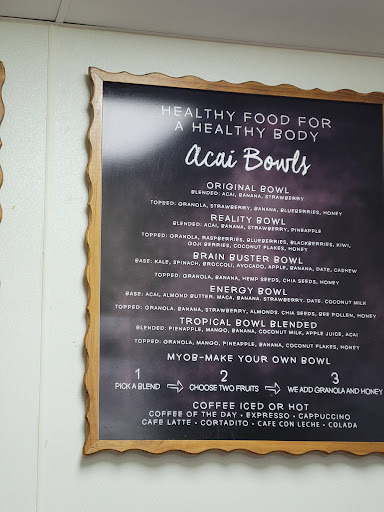 HEALTHY FOOD FOR
A HEALTHY BODY
Acai Bowls
ORIGINAL BOWL
BLENDED: ACAI, BANANA, STRAWBERRY
TOPPED: GRANOLA, STRAWBERRY, BANANA, BLUEBERRIES, HONEY
REALITY BOWL
BLENDED: ACAI, BANANA, STRAWBERRY, PINEAPPLE
TOPPED: GRANOLA, RASPBERRIES, BLUEBERRIES, BLACKBERRIES, KIWI,
GOJI BERRIES, COCONUT FLAKES, HONEY
BRAIN BUSTER BOWL
BASE: KALE, SPINACH, BROCCOLI, AVOCADO, APPLE, BANANA, DATE, CASHEW
TOPPED: GRANOLA, BANANA, HEMP SEEDS, CHIA SEEDS, HONEY
ENERGY BOWL
BASE: ACAI, ALMOND BUTTER, MACA, BANANA, STRAWBERRY, DATE, COCONUT MILK
TOPPED: GRANOLA, BANANA, STRAWBERRY, ALMONDS, CHIA SEEDS, BEE POLLEN, HONEY
TROPICAL BOWL BLENDED
BLENDED: PIENAPPLE, MANGO, BANANA, COCONUT MILK, APPLE JUICE, ACAI
TOPPED: GRANOLA, MANGO, PINEAPPLE, BANANA, COCONUT FLAKES, HONEY
MYOB-MAKE YOUR OWN BOWL
1 2 3
PICK A BLEND → CHOOSE TWO FRUITS → WE ADD GRANOLA AND HONEY
COFFEE ICED OR HOT
COFFEE OF THE DAY • EXPRESSO • CAPPUCCINO
CAFE LATTE • CORTADITO • CAFE CON LECHE • COLADA